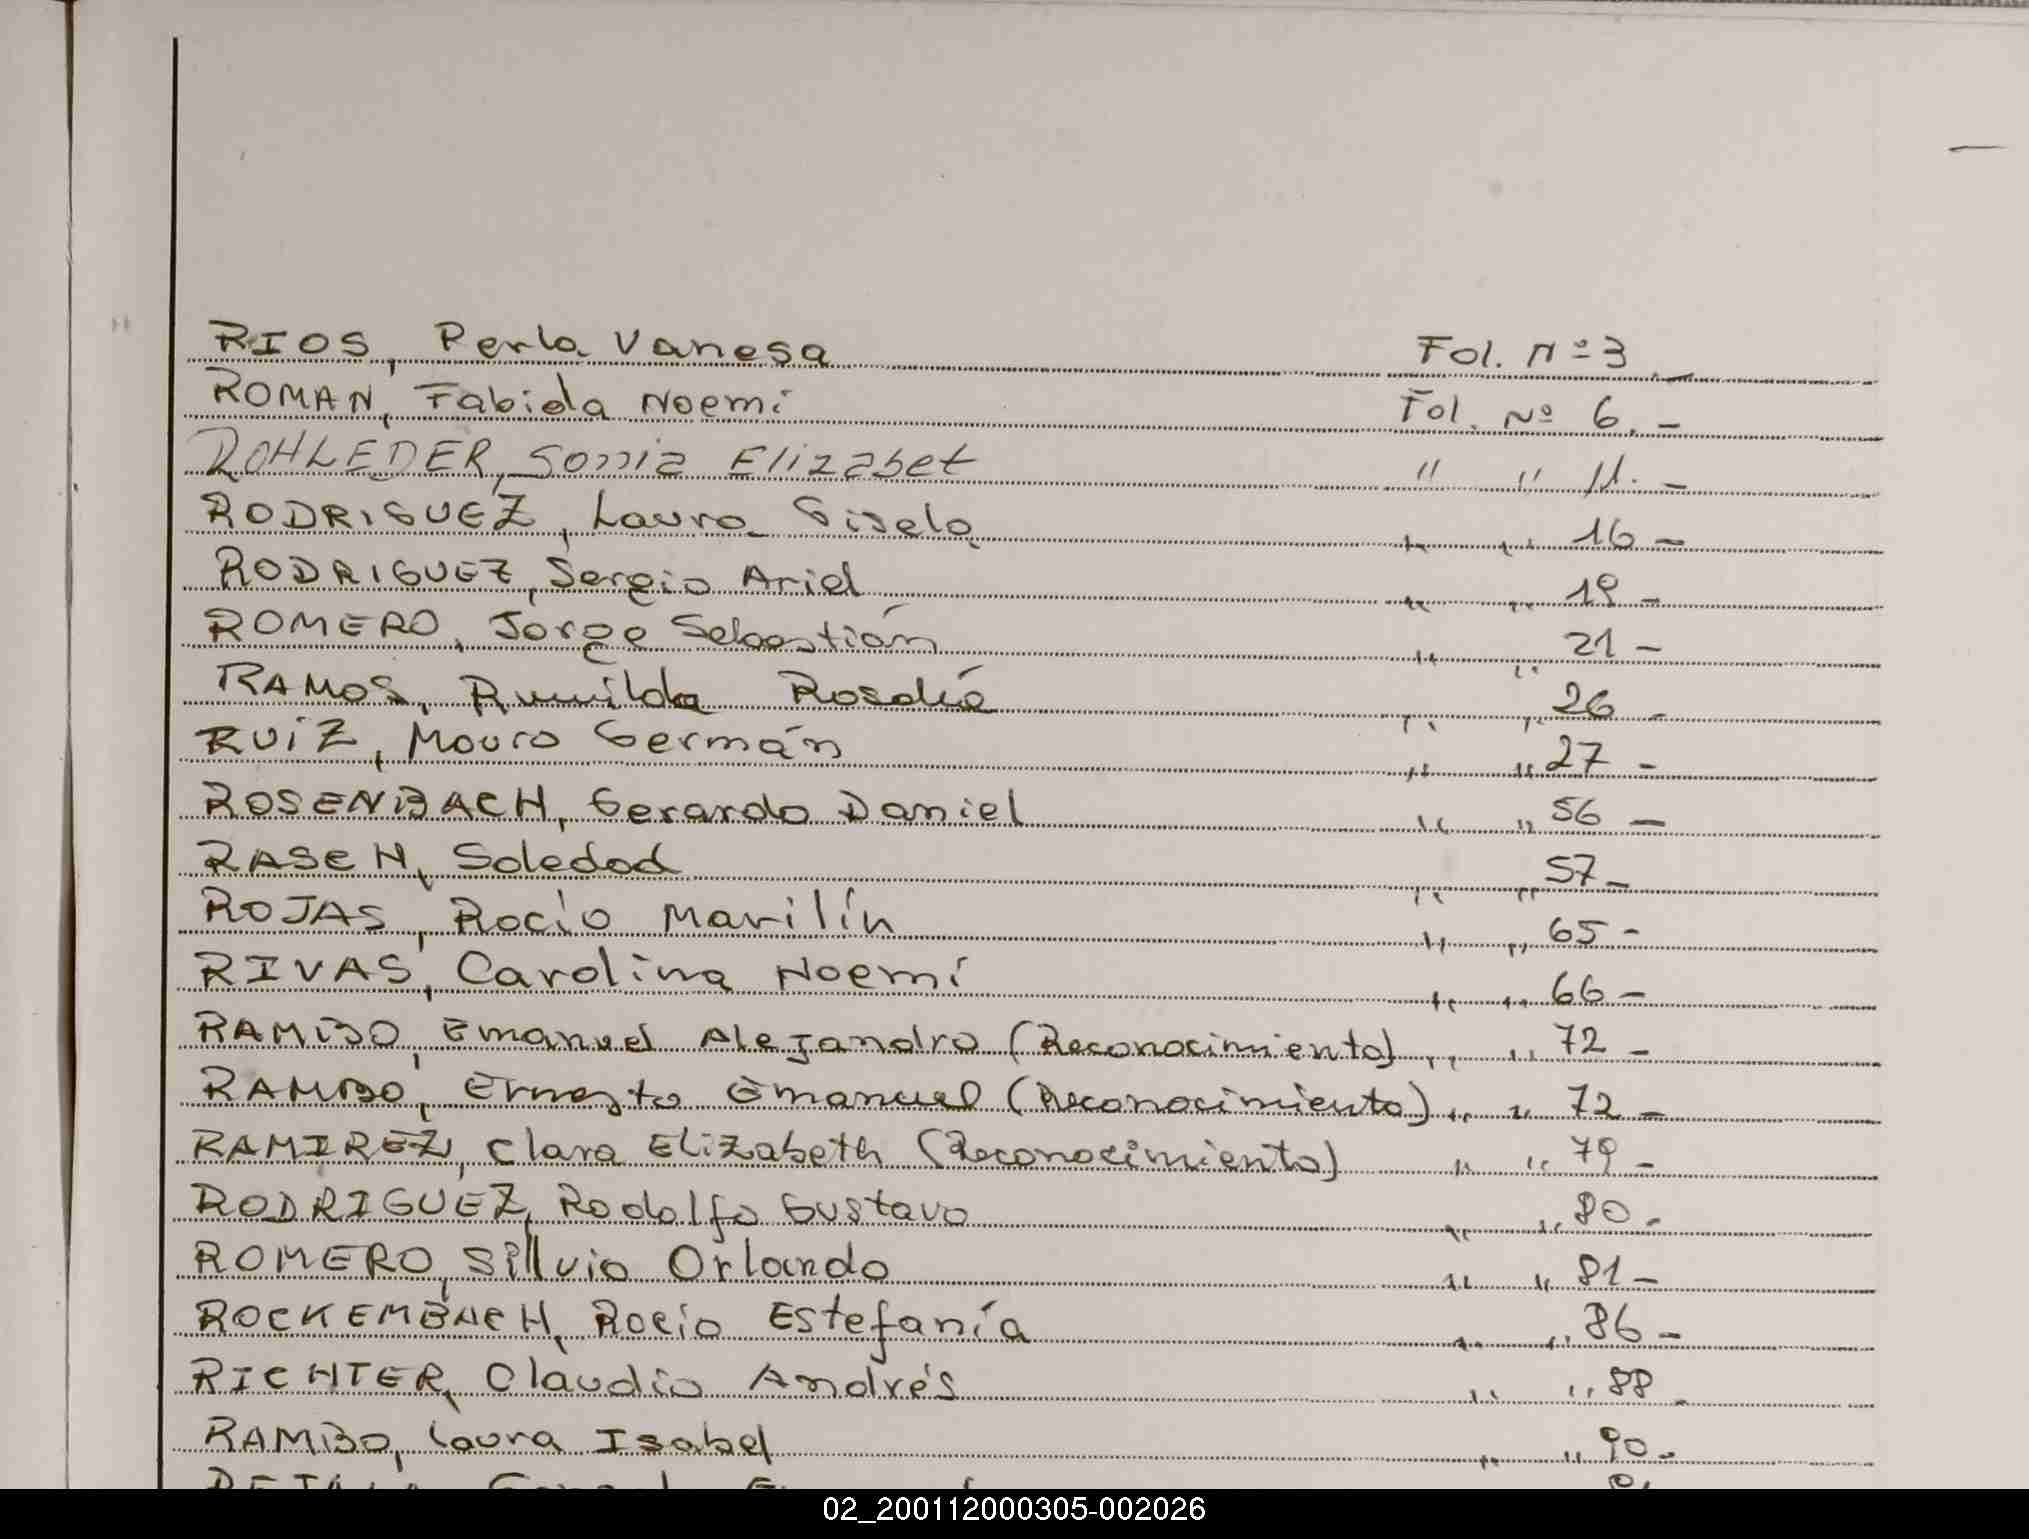 RIOS, Perla Vanesa Fol. Nº 3 -
ROMAN, Fabiola Noemi Fol. Nº 6. -
ROHLEDER, Sonnia Elizabet " " 11. -
RODRIGUEZ, Laura Gisela " " 16 -
RODRIGUEZ, Sergio Ariel " " 19 -
ROMERO, Jorge Sebastián " " 21 -
RAMOS, Rumilda Rosalía " " 26 -
RUIZ, Mauro Germán " " 27 -
ROSENBACH, Gerardo Daniel " " 56 -
RASCH, Soledad " " 57 -
ROJAS, Rocío Marilín " " 65 -
RIVAS, Carolina Noemí " " 66 -
RAMBO, Emanuel Alejandro (Reconocimiento) " " 72 -
RAMBO, Ernesto Emanuel (Reconocimiento) " " 72 -
RAMIREZ, Clara Elizabeth (Reconocimiento) " " 79 -
RODRIGUEZ, Rodolfo Gustavo " " 80 -
ROMERO, Sillvio Orlando " " 81 -
ROCKEMBACH, Rocío Estefanía " " 86 -
RICHTER, Claudio Andrés " " 88 -
RAMBO, Laura Isabel " " 90 -
02_200112000305-002026